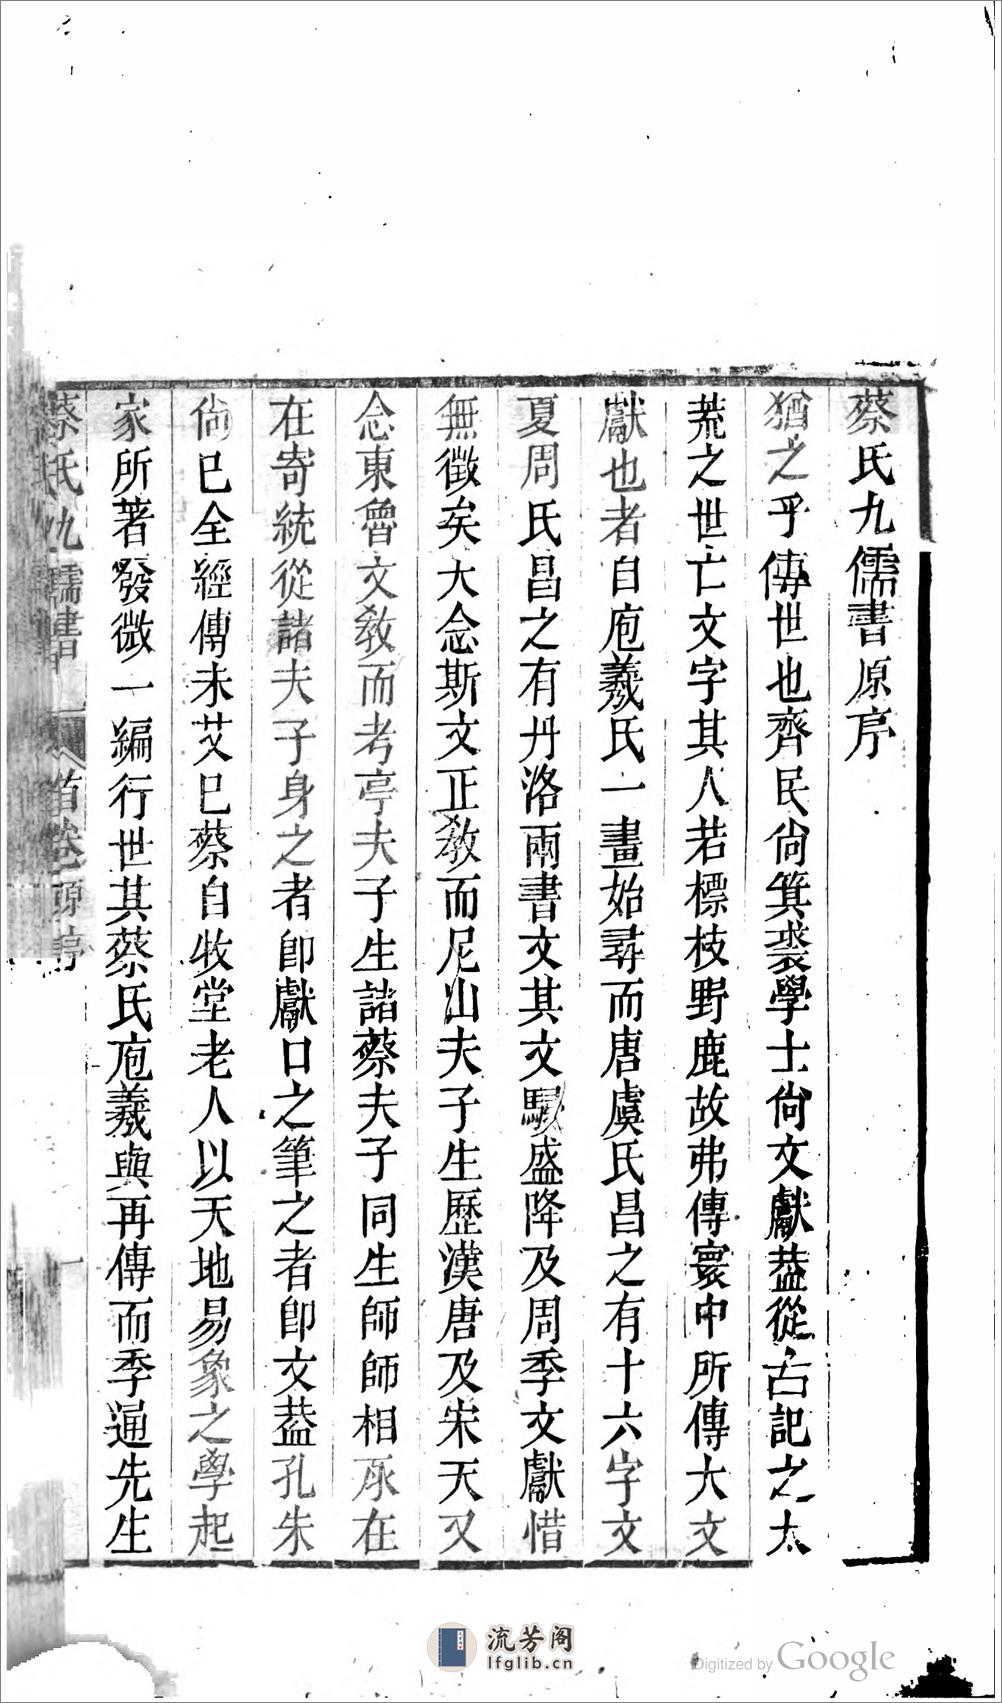 蔡氏九儒書原序
猶之乎傳世也齊民尙箕裘學士尙文獻葢從古記之太
荒之世亡文字其人若標枝野鹿故弗傳寰中所傳大文
獻也者自庖羲氏一畫始尋而唐虞氏昌之有十六字文
夏周氏昌之有丹洛兩書文其文駸盛降及周季文獻惜
無徵矣大念斯文正敎而尼山夫子生歷漢唐及宋天又
念東魯文敎而考亭夫子生諸蔡夫子同生師師相承在
在寄統從諸夫子身之者卽獻口之筆之者卽文葢孔朱
尙已全經傳未艾已蔡自牧堂老人以天地易象之學起
家所著發微一編行世其蔡氏庖羲與再傳而季通先生
蔡氏九儒書 首卷 原序 一
流芳阁
lfglib.cn
Digitized by Google